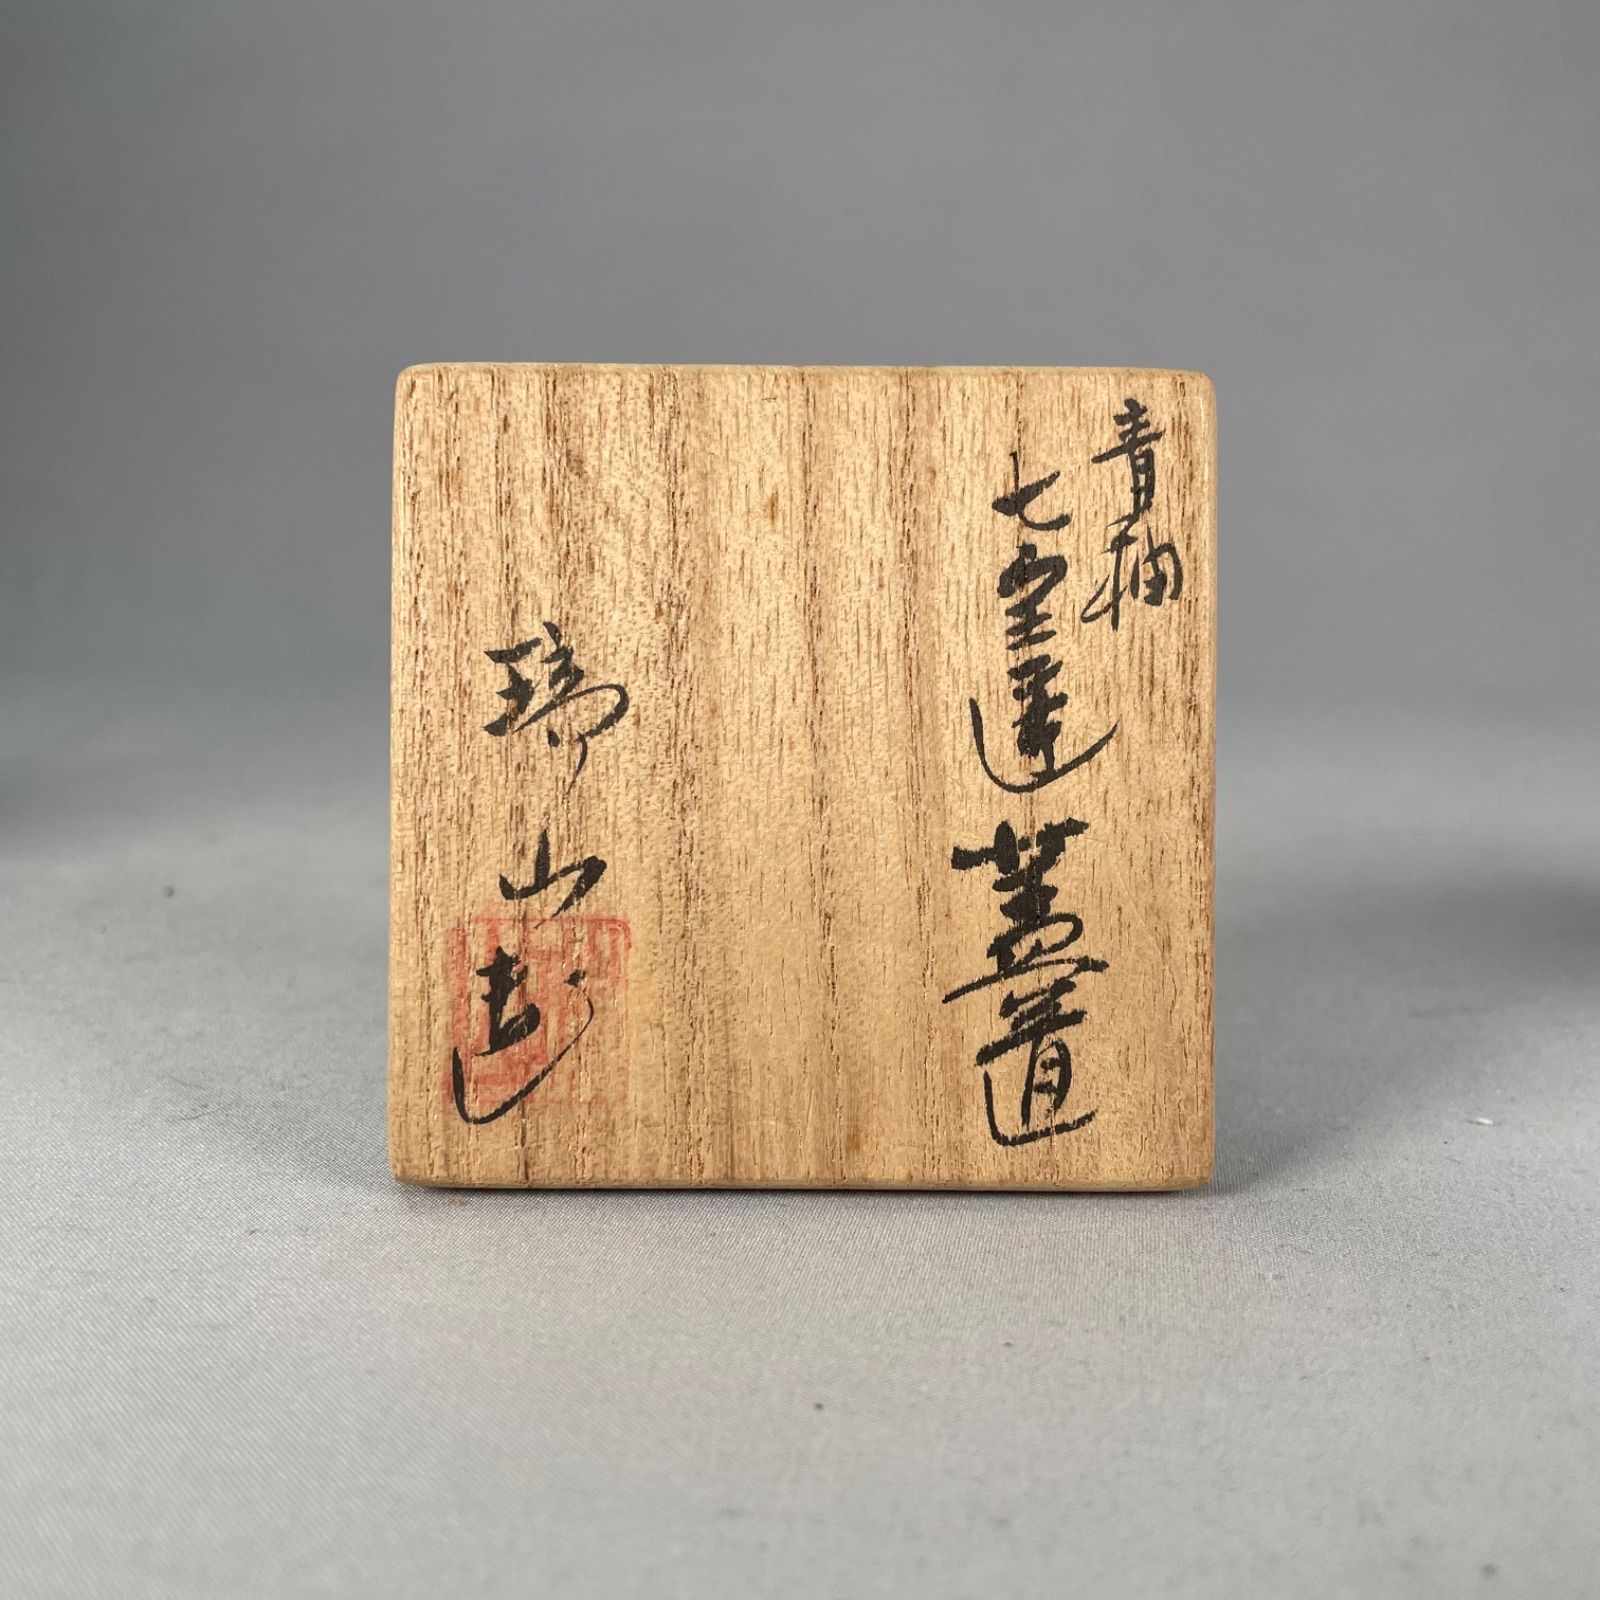 青釉
七宝透蓋置
瑞山造